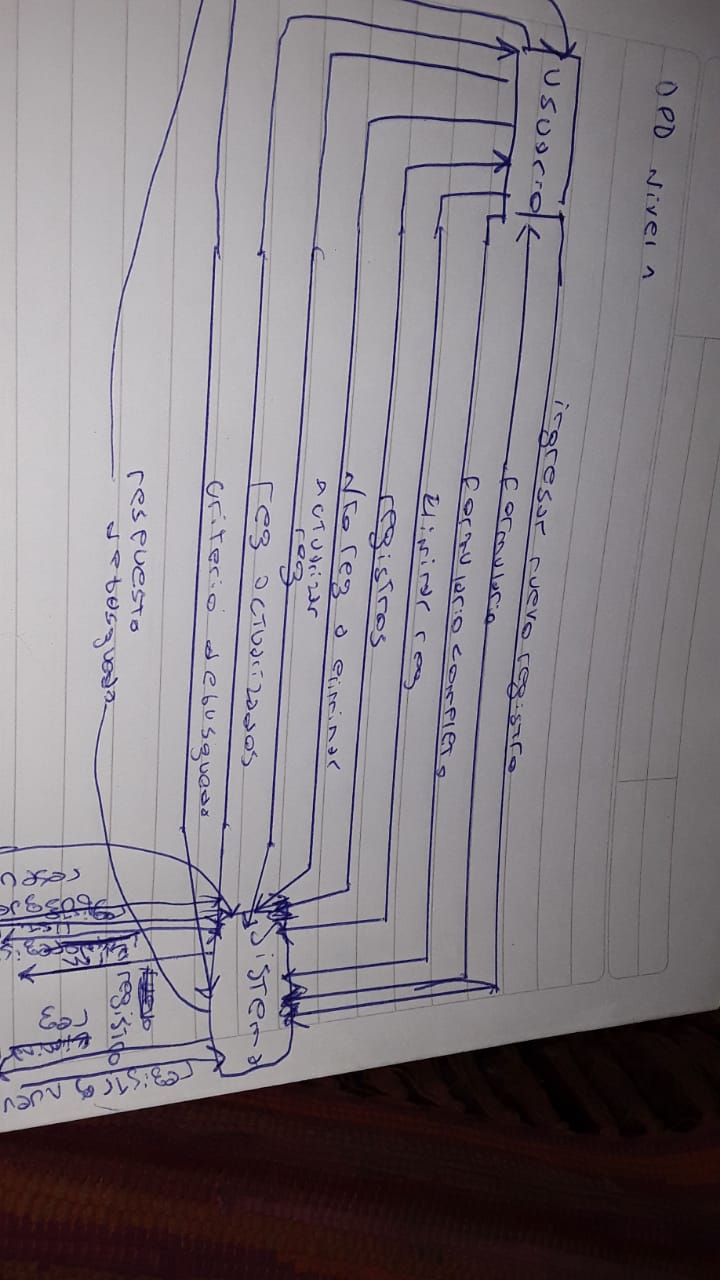 DPD Nivel 1
Usuario
ingresar nuevo registro
formulario
formulario completo
Eliminar reg
registros
Nro reg a eliminar
Actualizar
reg
reg actualizados
criterio de busqueda
respuesta
de besqueda
Sistema
registro
reg